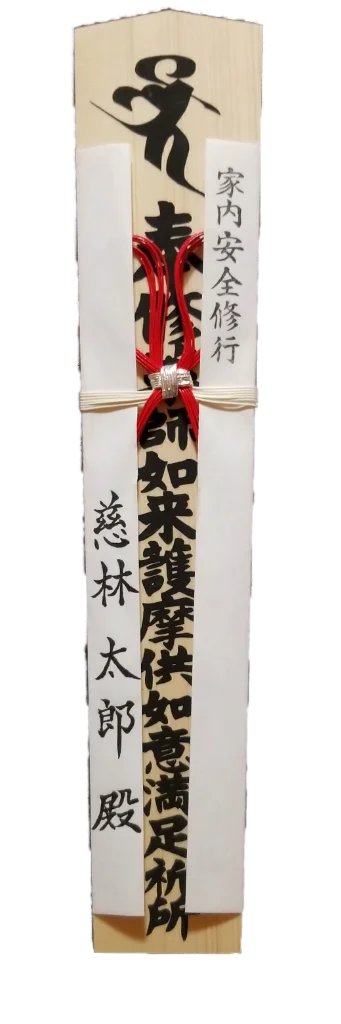 家内安全修行
奉修師如来護摩供如意満足祈所
慈林 太郎 殿